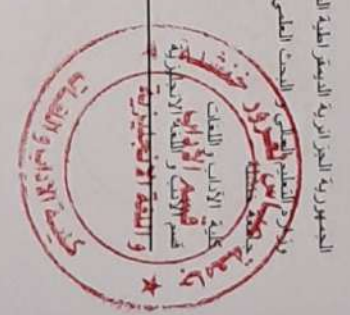 الجمهورية الجزائرية الديمقراطية
وزارة التعليم العالي و البحث العلمي
جامعة عباس لغرور خنشلة
كلية الآداب و اللغات
قسم الآداب و اللغة الإنجليزية
قسم الآداب
و اللغة الانجليزية
كلية الآداب و اللغات